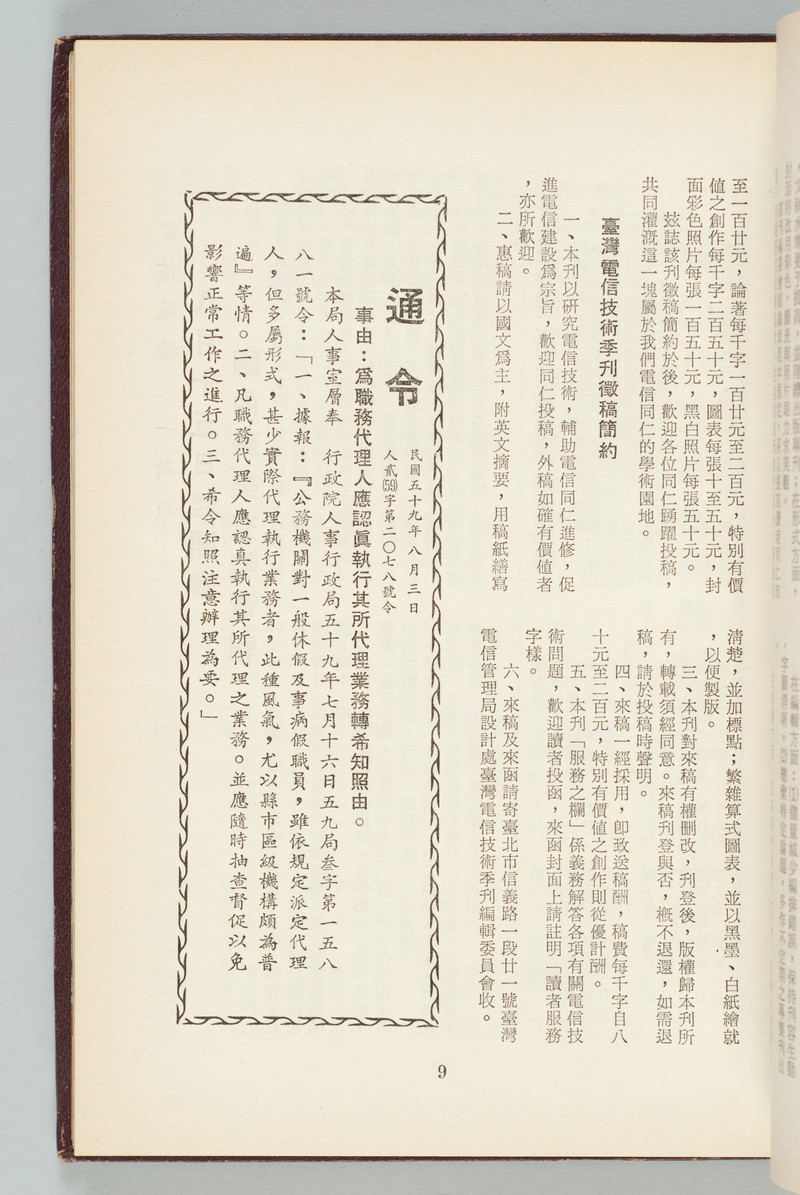 至一百廿元，論著每千字一百廿元至二百元，特別有價
值之創作每千字二百五十元，圖表每張十至五十元，封
面彩色照片每張一百五十元，黑白照片每張五十元。
茲誌該刊徵稿簡約於後，歡迎各位同仁踴躍投稿，
共同灌溉這一塊屬於我們電信同仁的學術園地。
臺灣電信技術季刊徵稿簡約
一、本刊以研究電信技術，輔助電信同仁進修，促
進電信建設爲宗旨，歡迎同仁投稿，外稿如確有價値者
，亦所歡迎。
二、惠稿請以國文爲主，附英文摘要，用稿紙繕寫
淸楚，並加標點；繁雜算式圖表，並以黑墨、白紙繪就
，以便製版。
三、本刊對來稿有權刪改，刊登後，版權歸本刊所
有，轉載須經同意。來稿刊登與否，概不退還，如需退
稿，請於投稿時聲明。
四、來稿一經採用，卽致送稿酬，稿費每千字自八
十元至二百元，特別有價値之創作則從優計酬。
五、本刊「服務之欄」係義務解答各項有關電信技
術問題，歡迎讀者投函，來函封面上請註明「讀者服務
字樣。
六、來稿及來函請寄臺北市信義路一段廿一號臺灣
電信管理局設計處臺灣電信技術季刊編輯委員會收。
通令
民國五十九年八月三日
人貳(59)字第二〇七八號令
事由：爲職務代理人應認眞執行其所代理業務轉希知照由。
本局人事室層奉　行政院人事行政局五十九年七月十六日五九局叁字第一五八
八一號令：「一、據報：『公務機關對一般休假及事病假職員，雖依規定派定代理
人，但多屬形式，甚少實際代理執行業務者，此種風氣，尤以縣市區級機構頗為普
遍』等情。二、凡職務代理人應認真執行其所代理之業務。並應隨時抽查督促以免
影響正常工作之進行。三、希令知照注意辦理為要。」
9